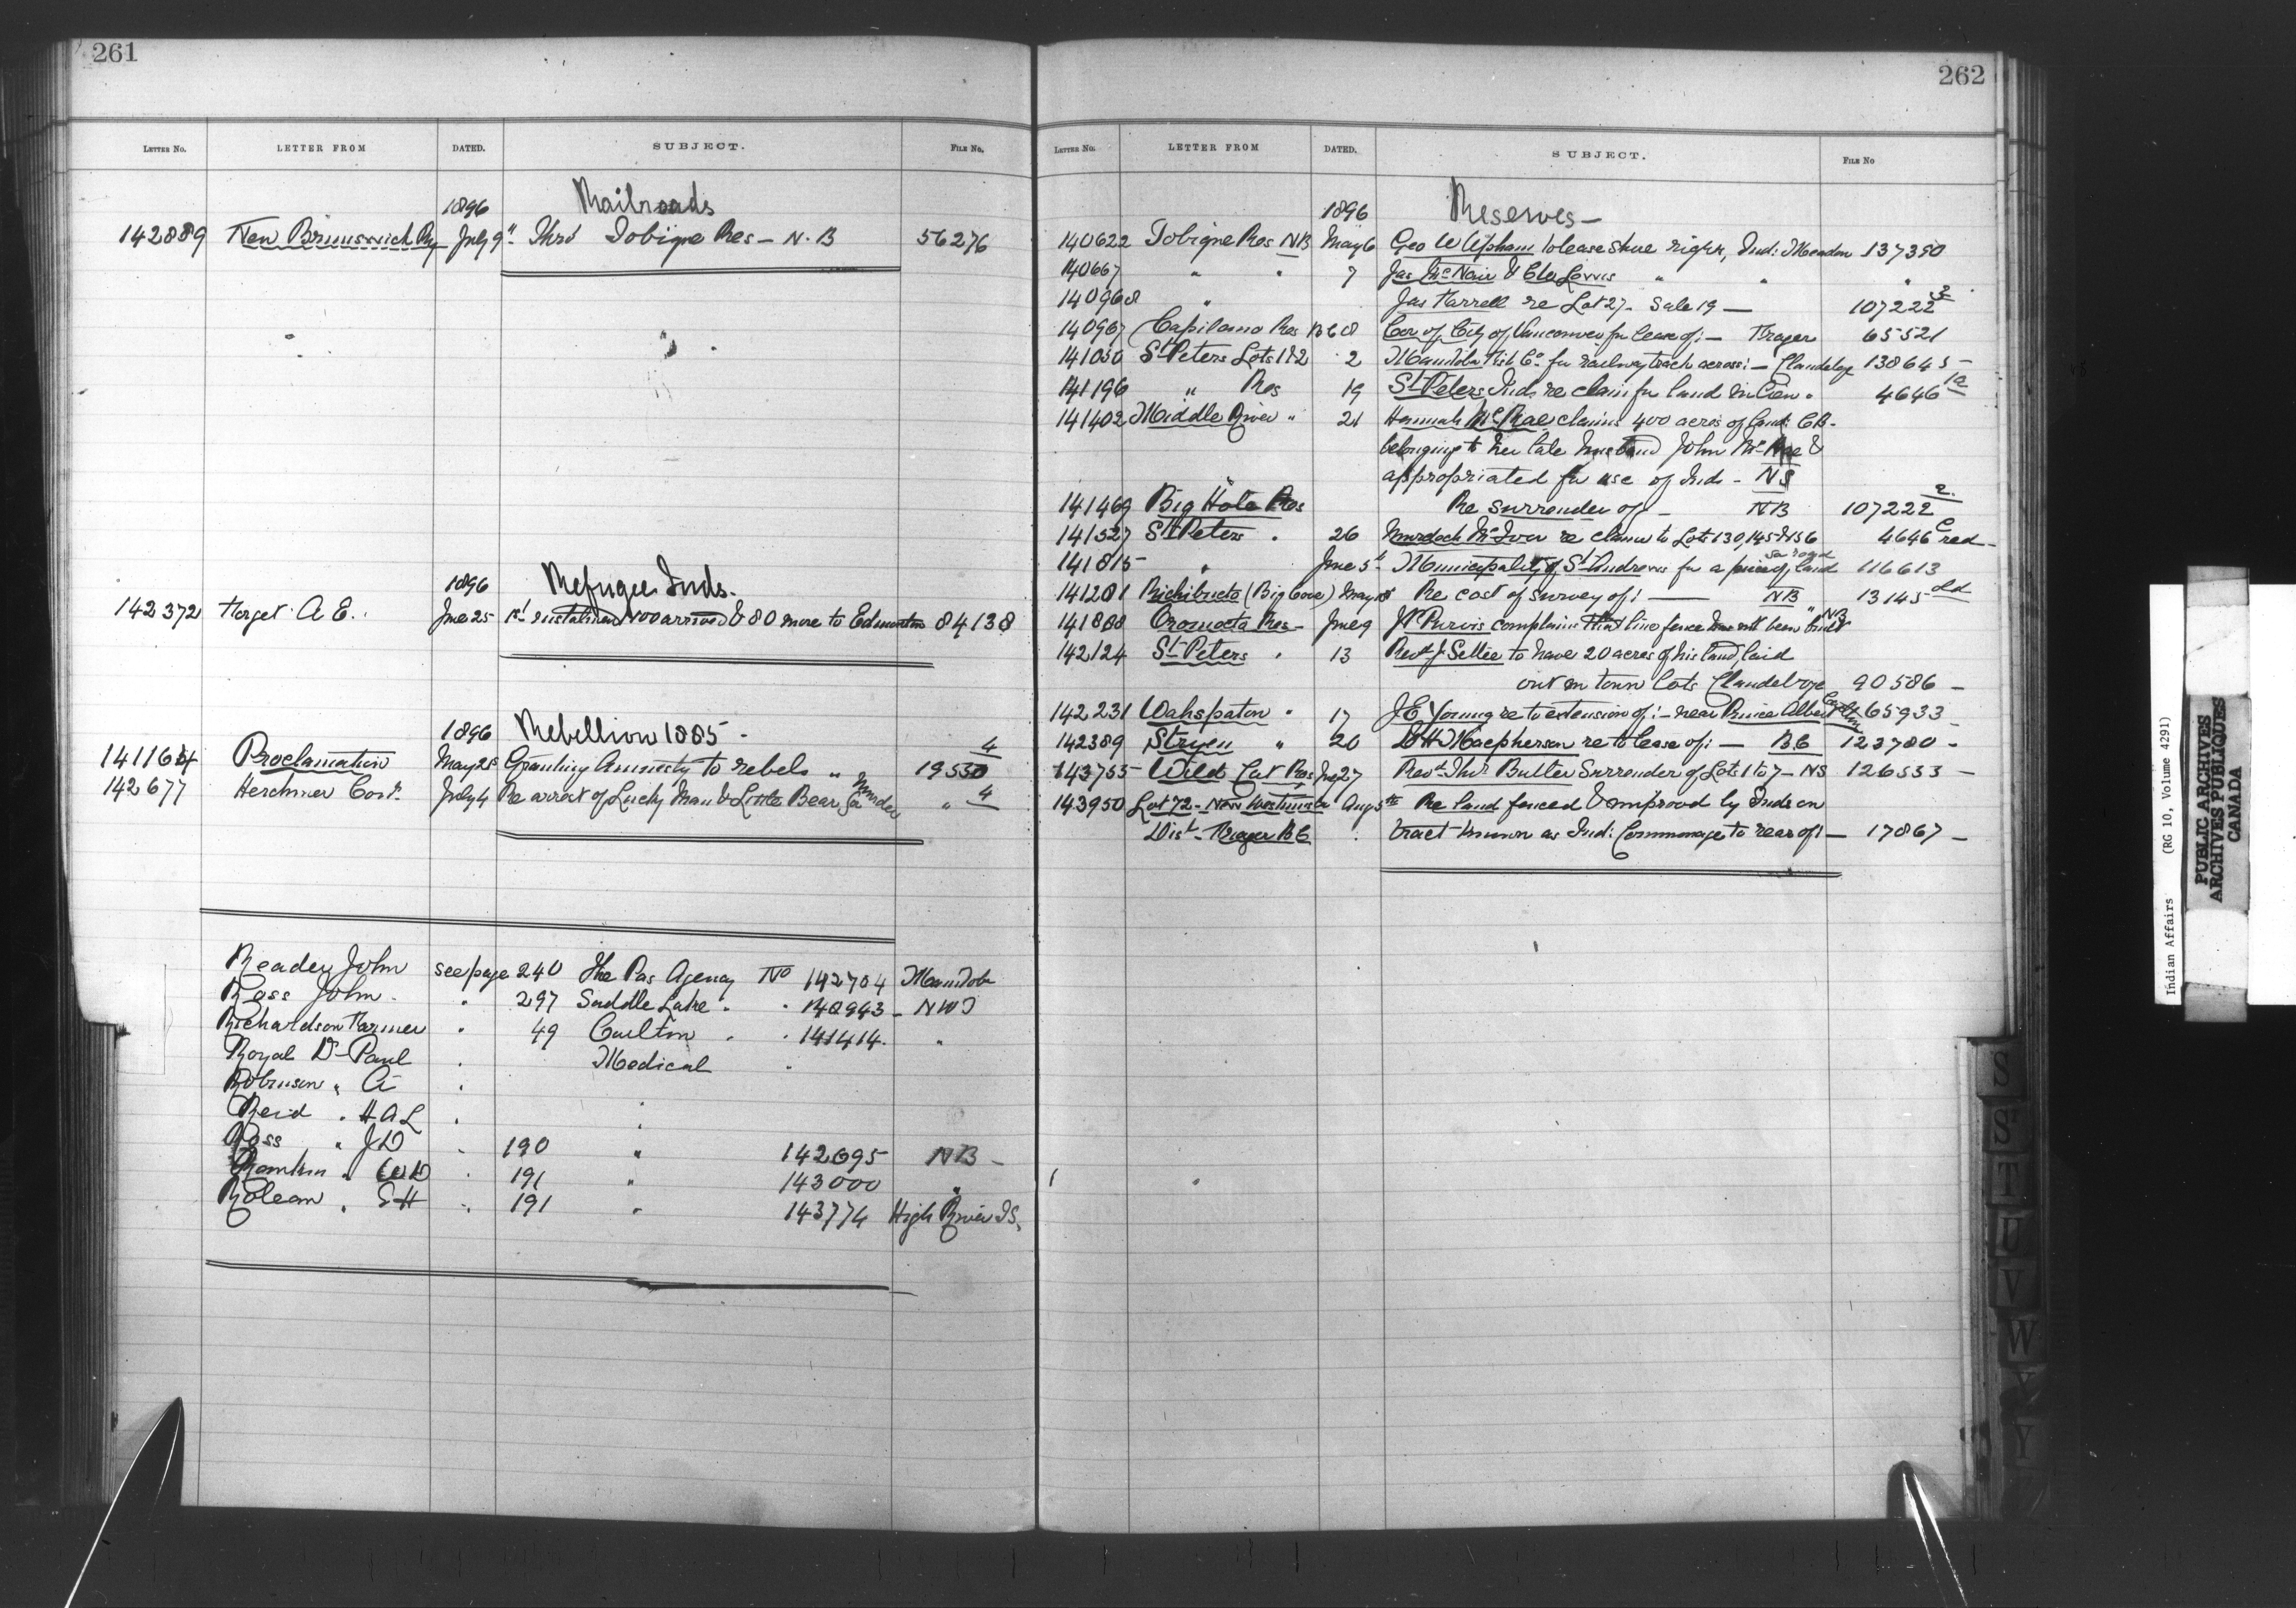 261
LETTER NO. LETTER FROM DATED. SUBJECT. FILE NO.
1896 Railroads
142889 New Brunswick Ry July 9th Thro' Tobique Res - N.B 56276
1896 Refugee Inds.
142372 Forget A E. June 25 1st instalment 100 arrived & 80 more to Edmonton 84138
1896 Rebellion 1885 -
141164 Proclamation May 28 Granting Amnesty to rebels " 19550 4
142677 Herchmer Comr. July 4 Re arrest of Lucky Man & Little Bear for murder " 4
Reader John see page 240 The Pas Agency No 142704 Manitoba
Ross John. " 297 Saddle Lake " " 140943 - NWT
Richardson Farmer " 49 Carlton " " 141414. "
Royal Dr Paul " Medical "
Robinson " A "
Reid " H A L "
Ross " J D " 190 " 142695 NB -
" W D " 191 " 143000 "
" E H " 191 " 143774 High River I S.
262
LETTER NO. LETTER FROM DATED. SUBJECT. FILE NO
1896 Reserves -
140622 Tobique Res NB May 6 Geo W Upham to lease shore rights, Ind: Meadow 137350
140667 " " 7 Jas McNair & Lewis " " "
140968 " Jas Farrell re Lot 27 - Sale 19 - 107222 2
140967 Capilano Res B C 8 Cor of City of Vancouver for lease of: - Fraser 65521
141050 St Peters Lots 1 & 2 " 2 Manitoba Fish Co. for railway track across: - Clandeboye 138645 -
141196 " Res 19 St Peters Inds re claim for land in lieu " 4646 1a
141402 Middle River " 21 Hannah McRae claims 400 acres of land C B.
belonging to her late husband John McRae &
appropriated for use of Inds - NS
141469 Big Hole Res Re surrender of - NB 107222 2.
141527 St Peters " 26 Murdoch McIvor re claim to Lots 130, 145 & 156 4646 C red -
141815 " June 5th Municipality of St Andrews for a piece of land 116613
for road
141281 Richibucto (Big Cove) May 18 Re cost of survey of: - NB 13145 Ld
141888 Oromocto Res - June 9 Jno Purvis complains that line fence has not been built " NB
142124 St Peters " 13 Revd J Settee to have 20 acres of his land, laid
out in town lots Clandeboye 90586 -
142231 Wahspaton " 17 J E Young re to extension of: - near Prince Albert Carlton 65933 -
142389 Stryen " 20 D H Macpherson re to lease of: - BC 123780 -
143755 Wild Cat Res July 27 Revd Thos Butler Surrender of Lots 1 to 7 - NS 126533 -
143950 Lot 72 - New Westminster Aug 5th Re land fenced & improved by Inds on
Dist. Fraser B C tract known as Ind: Commonage to rear of: - 17867 -
S
ST
T
U
V
W
Y
Y
Indian Affairs (RG 10, Volume 4291)
PUBLIC ARCHIVES
ARCHIVES PUBLIQUES
CANADA